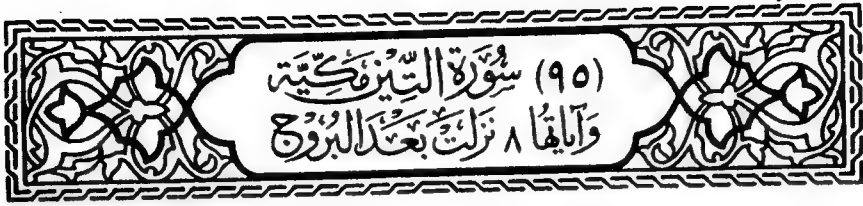 (٩٥) سُورَةُ التِّينِ مَكِّيَّة
وَآيَاتُهَا ٨ نَزَلَتْ بَعْدَ البُرُوجِ